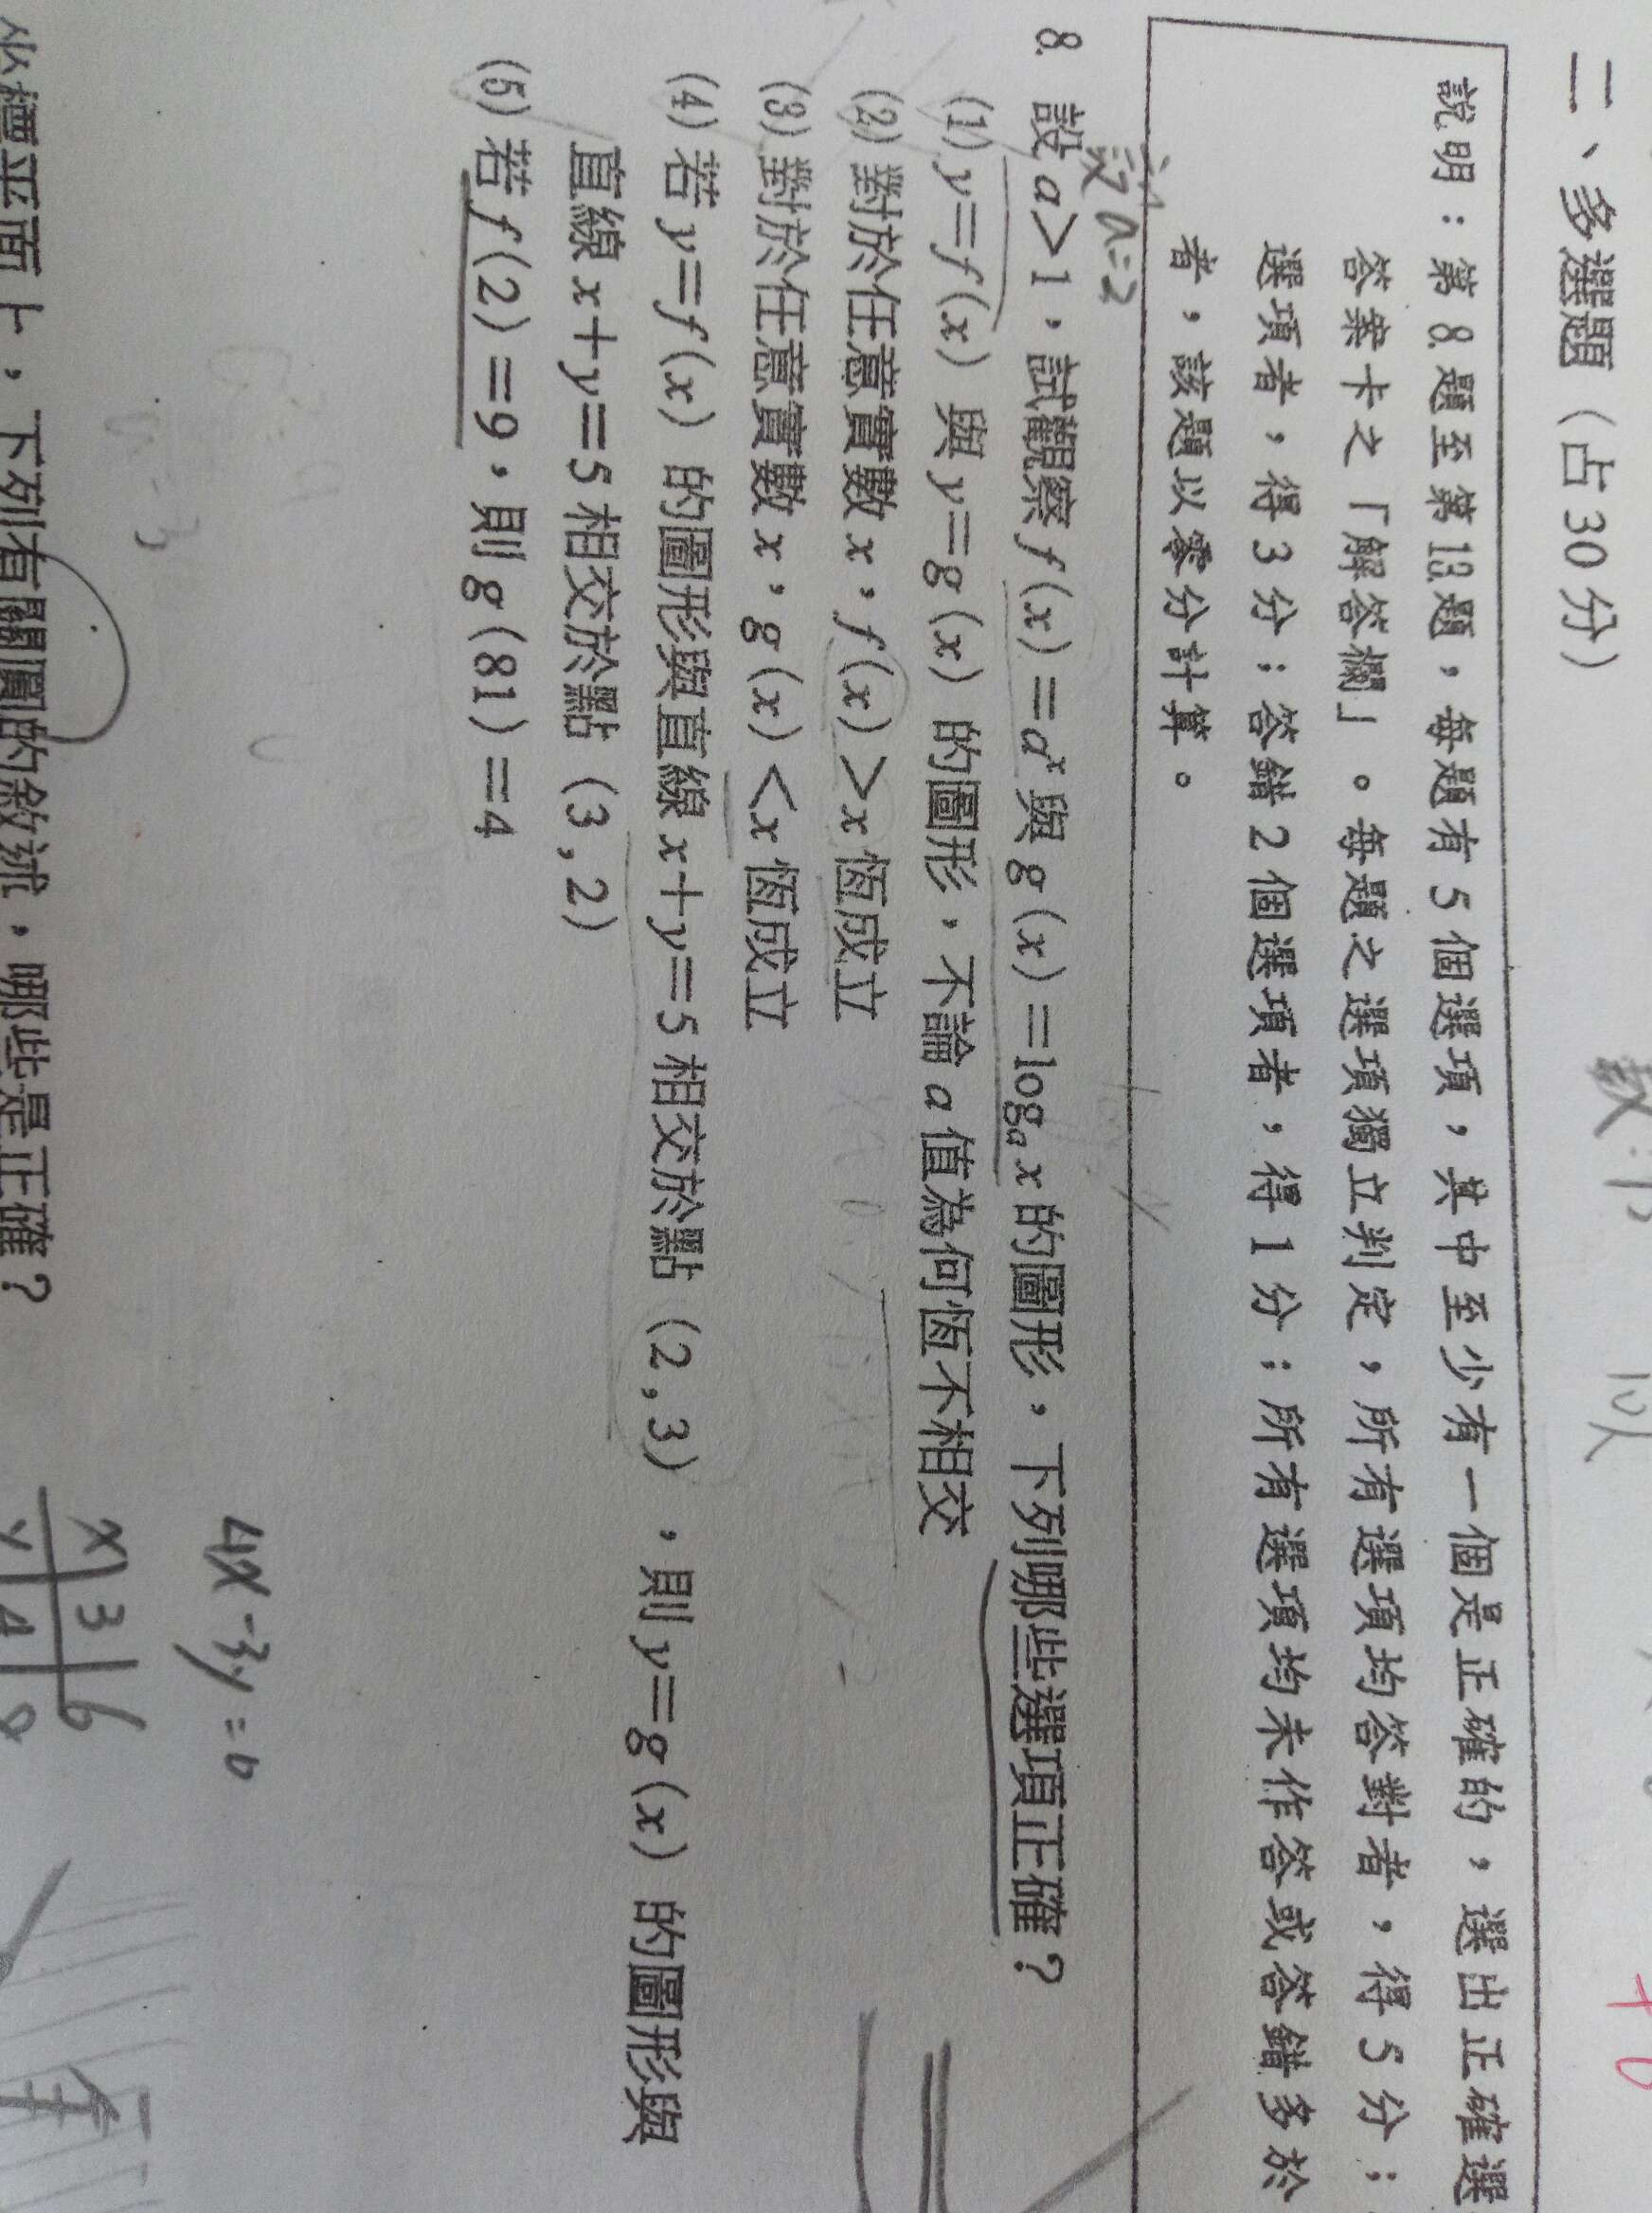 二、多選題（占30分）
說明：第8.題至第13.題，每題有5個選項，其中至少有一個是正確的，選出正確選
答案卡之「解答欄」。每題之選項獨立判定，所有選項均答對者，得5分；
選項者，得3分；答錯2個選項者，得1分；所有選項均未作答或答錯多於
者，該題以零分計算。
設a=2
8. 設a>1，試觀察f(x)=aˣ與g(x)=logₐx的圖形，下列哪些選項正確？
(1) y=f(x) 與 y=g(x) 的圖形，不論a值為何恆不相交
(2) 對於任意實數x，f(x)>x恆成立
(3) 對於任意實數x，g(x)<x恆成立
(4) 若y=f(x) 的圖形與直線x+y=5相交於點 (2,3)，則y=g(x) 的圖形與
直線x+y=5相交於點 (3,2)
(5) 若f(2)=9，則g(81)=4
4x-3y=0
x 3 6
y 4
坐標平面上，下列有關圓的敘述，哪些是正確？